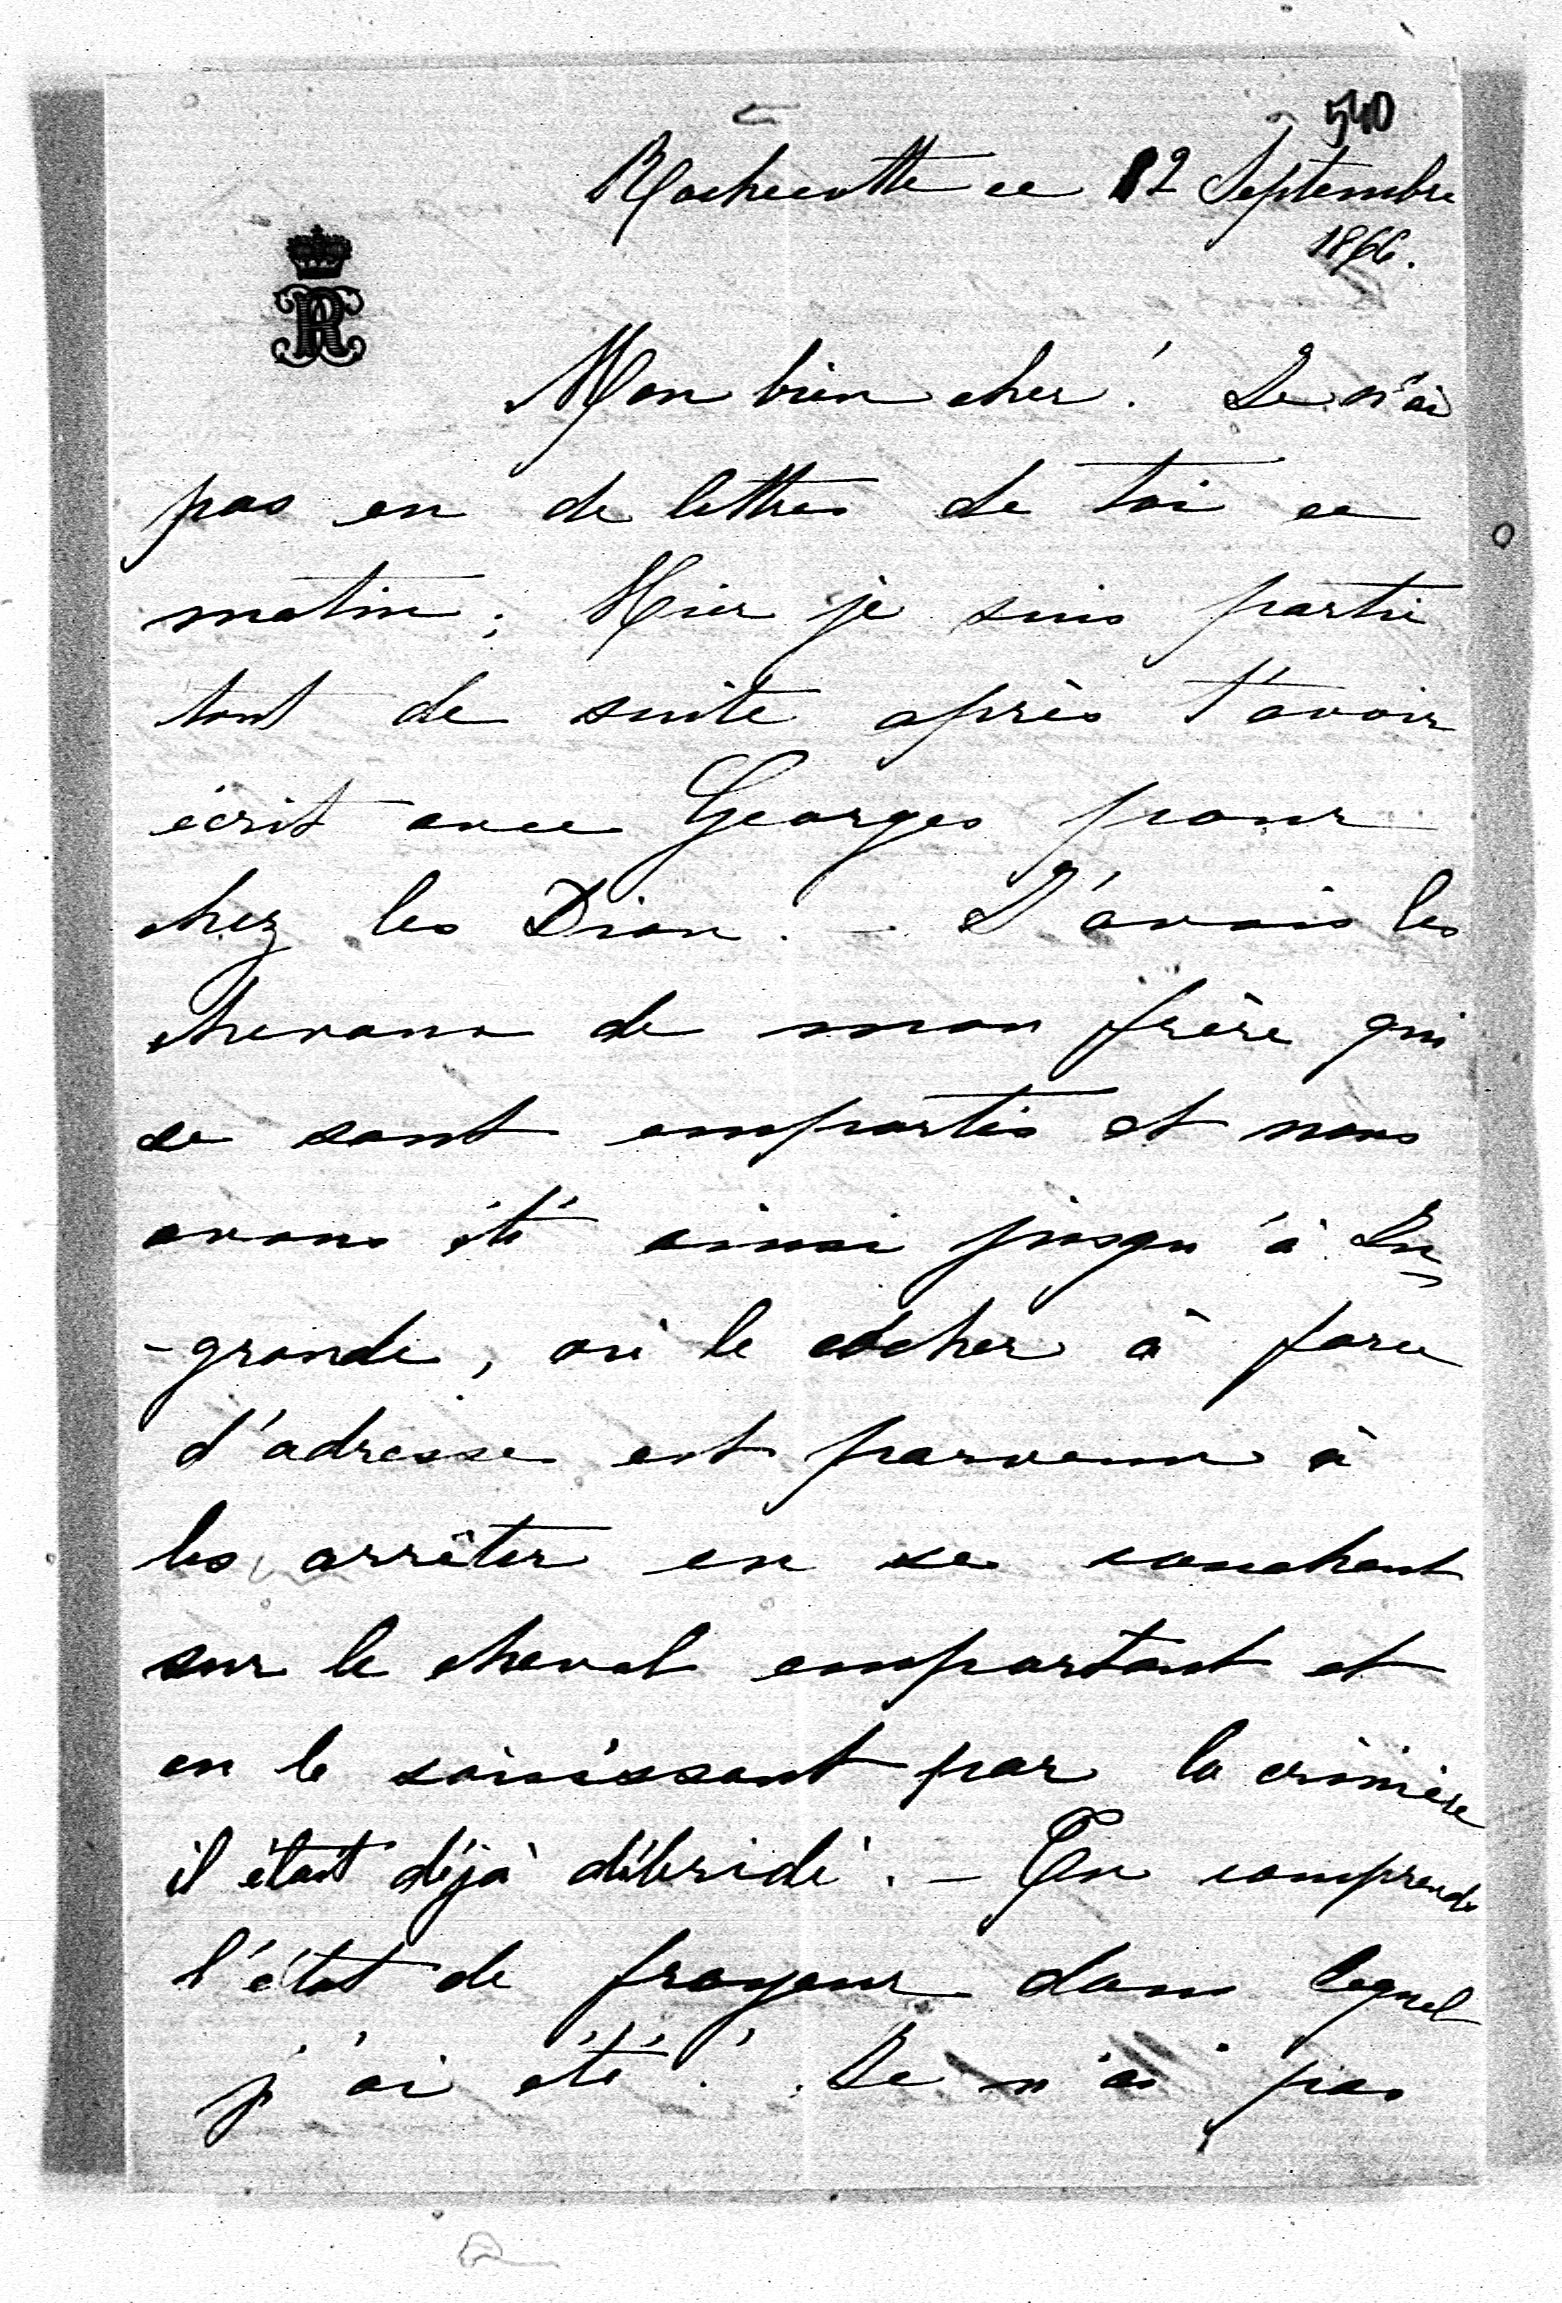 540
Rochecotte ce 12 Septembre
1866.
R
Mon bien cher! Je n'ai
pas eu de lettres de toi ce
matin; Hier je suis partie
tout de suite après t'avoir
écrit avec Georges pour
chez les Dion. - J'avais les
chevaux de mon frère qui
se sont emportés et nous
avons été ainsi jusqu'à In
-grande, où le cocher à force
d'adresse est parvenu à
les arrêter en se couchant
sur le cheval emportant et
en le saisissant par la crinière
il était déjà débridé. - Tu comprends
l'état de frayeur dans lequel
j'ai été! Je n'ai pas